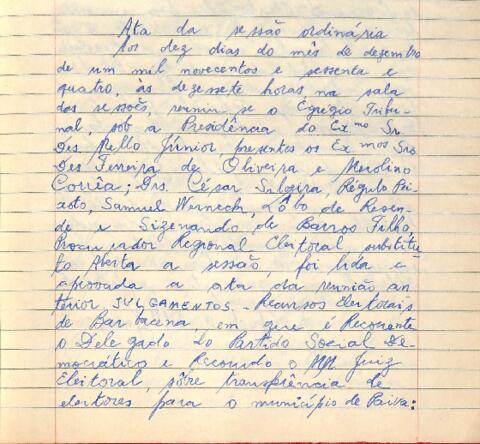 Ata da sessão ordinária
Aos dez dias do mês de dezembro
de um mil novecentos e sessenta e
quatro, às dezessete horas, na sala
das sessões, reuniu se o Egrégio Tribu-
nal, sob a Presidência do Ex.mo Sr.
Des. Mello Júnior, presentes os Ex.mos Srs.
Des Ferreira de Oliveira e Merolino
Corrêa; Drs. César Silveira, Régulo Pei-
xoto, Samuel Werneck, Lôbo de Resen-
de e Sizenando de Barros Filho,
Procurador Regional Eleitoral substitu-
to Aberta a sessão, foi lida e
aprovada a ata da reunião an
terior, JULGAMENTOS - Recursos eleitorais
de Barbacena, em que é Recorrente
o Delegado do Partido Social De-
mocrático e Recorrido o MM Juiz
Eleitoral, sôbre transferência de
eleitores para o município de Paiva: